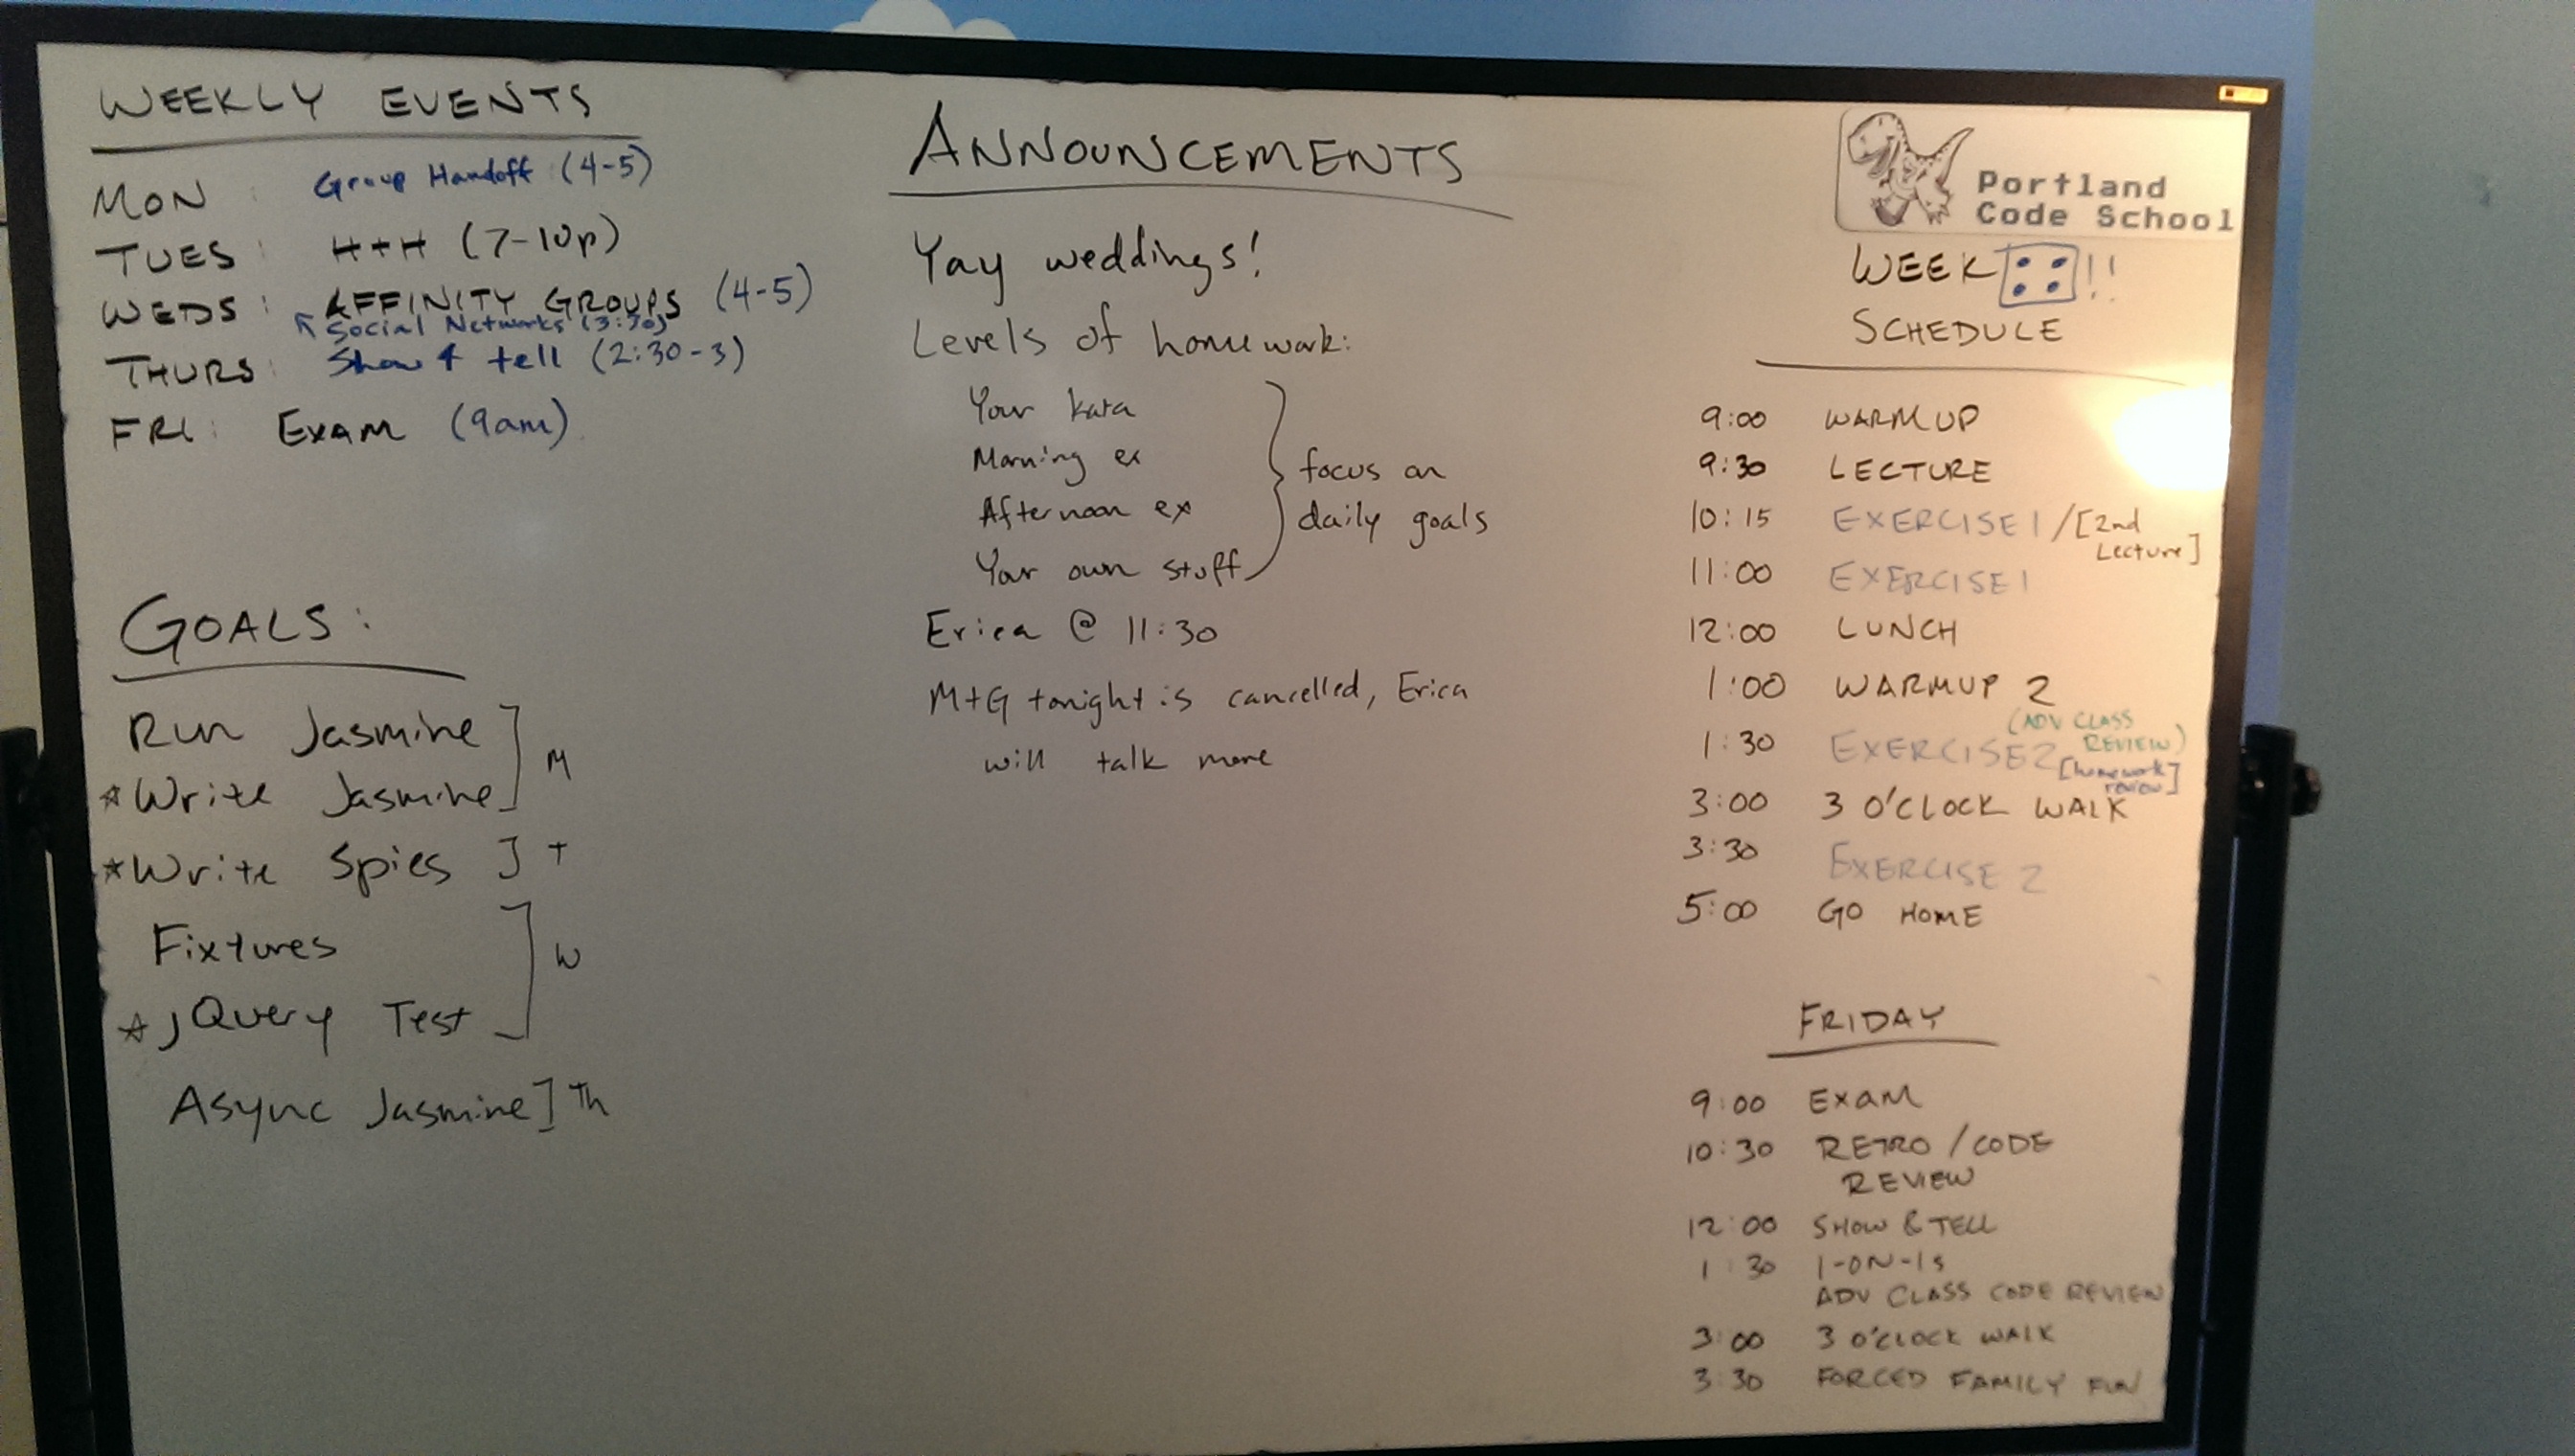 WEEKLY EVENTS
MON : Group Handoff (4-5)
TUES : H+H (7-10p)
WEDS : AFFINITY GROUPS (4-5)
Social Networks (3:30)
THURS : Show & tell (2:30-3)
FRI : EXAM (9am)
GOALS:
Run Jasmine
Write Jasmine ] M
Write Spies ] T
Fixtures
jQuery Test ] W
Async Jasmine ] Th
ANNOUNCEMENTS
Yay weddings!
Levels of homework:
Your kata
Morning ex
Afternoon ex
Your own stuff
focus on
daily goals
Erica @ 11:30
M+G tonight is cancelled, Erica
will talk more
Portland
Code School
WEEK !!
SCHEDULE
9:00 WARMUP
9:30 LECTURE
10:15 EXERCISE 1 / [2nd
Lecture]
11:00 EXERCISE 1
12:00 LUNCH
1:00 WARMUP 2
(ADV CLASS
REVIEW)
1:30 EXERCISE 2
[homework
review]
3:00 3 O'CLOCK WALK
3:30 EXERCISE 2
5:00 GO HOME
FRIDAY
9:00 EXAM
10:30 RETRO / CODE
REVIEW
12:00 SHOW & TELL
1:30 1-ON-1s
ADV CLASS CODE REVIEW
3:00 3 O'CLOCK WALK
3:30 FORCED FAMILY FUN